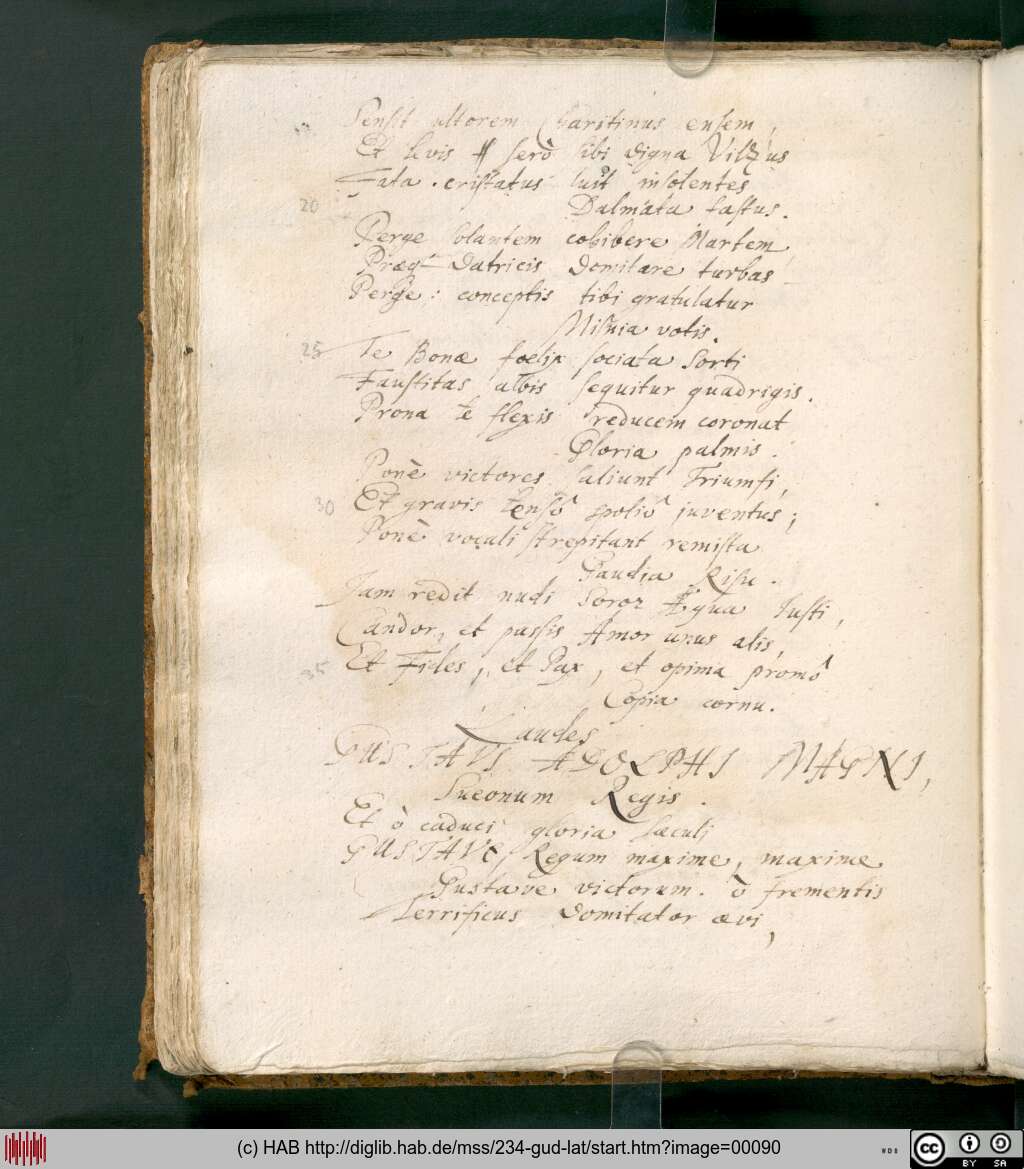 Sensit ultorem Charitinus ensem,
Et levis serò sibi digna
20 Fata. cristatus luit insolentes
Dalmata fastus.
Perge volantem cohibere Martem,
Datricis domitare turbas
Perge: conceptis tibi gratulatur
Misnia votis.
25 Te Bonæ foelix sociata Sorti
Faustitas albis sequitur quadrigis.
Prona te flexis reducem coronat
Gloria palmis.
Ponè victores saliunt Triumfi,
30 Et gravis tensô spoliô juventus;
Ponè vocali strepitant remista
Gaudia Risu.
Jam redit nudi soror Æqua Justi,
Candor, et passis Amor unus alis,
35 Et Fides, et Pax, et opima promô
Copia cornu.
Laudes
GUSTAVI ADOLPHI MAGNI,
Sueonum Regis.
Et ò caduci gloria sæculi
GUSTAVE, Regum maxime, maxime
Gustave victorum. ò frementis
Terrificus domitator ævi,
(c) HAB http://diglib.hab.de/mss/234-gud-lat/start.htm?image=00090
WDB
CC BY SA